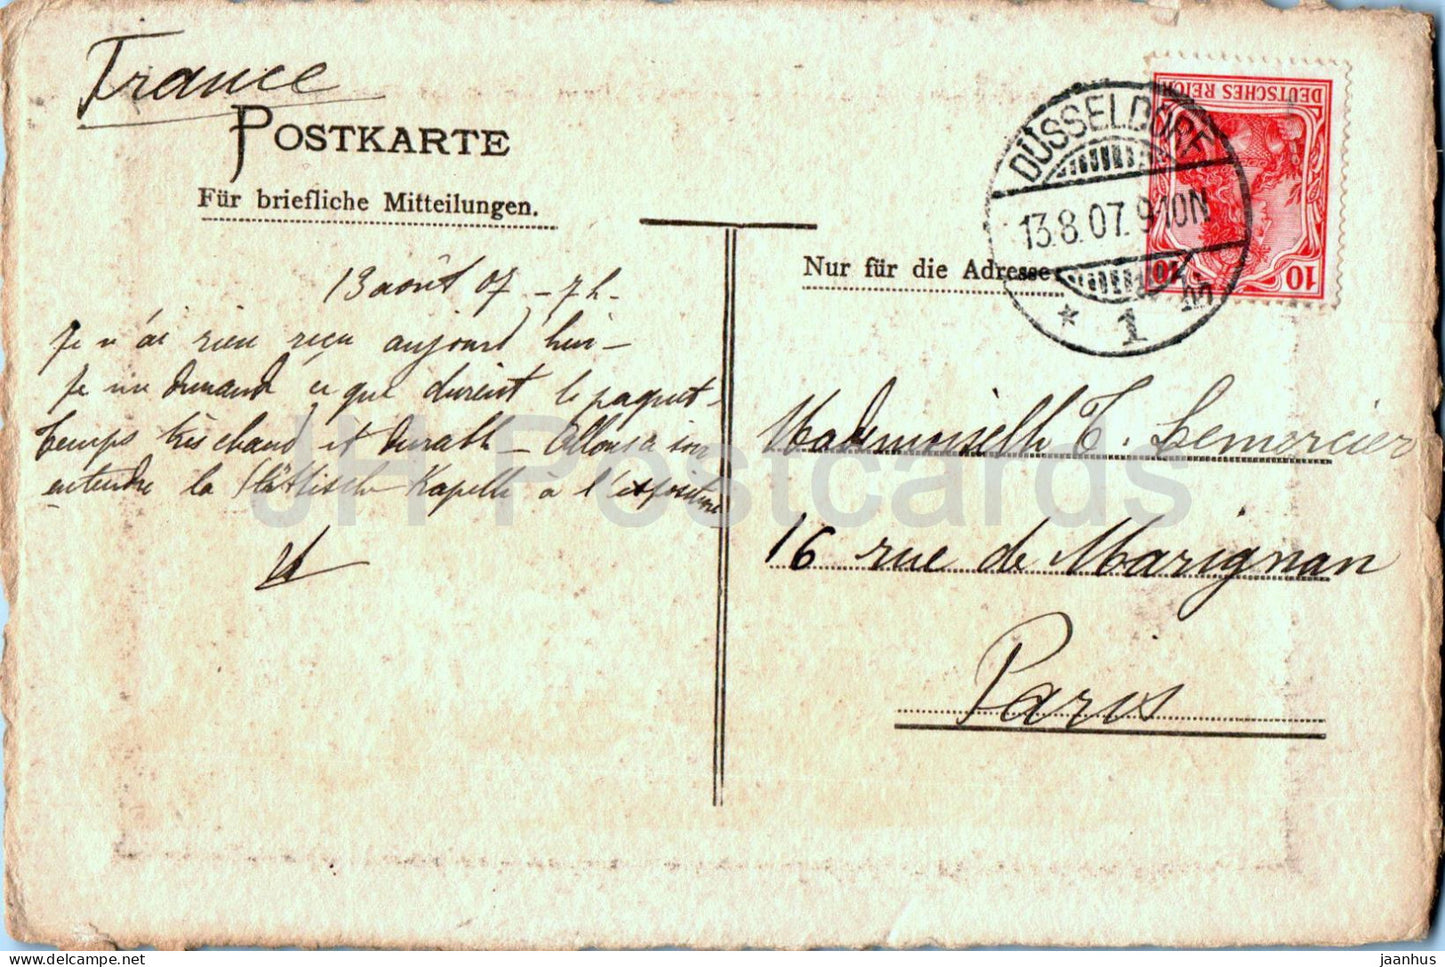 France
POSTKARTE
Für briefliche Mitteilungen.
13 août 07 - 7 h -
Je n'ai rien reçu aujourd'hui -
Je me demande ce que devient le paquet.
Temps très chaud et durable - Allons ce soir
entendre la Städtische Kapelle à l'exposition
DEUTSCHES REICH
10
10
DÜSSELDORF
13.8.07. 9-10N
* 1 m
Nur für die Adresse
Mademoiselle T. Lemercier
16 rue de Marignan
Paris
JH Postcards
delcampe.net
jaanhus